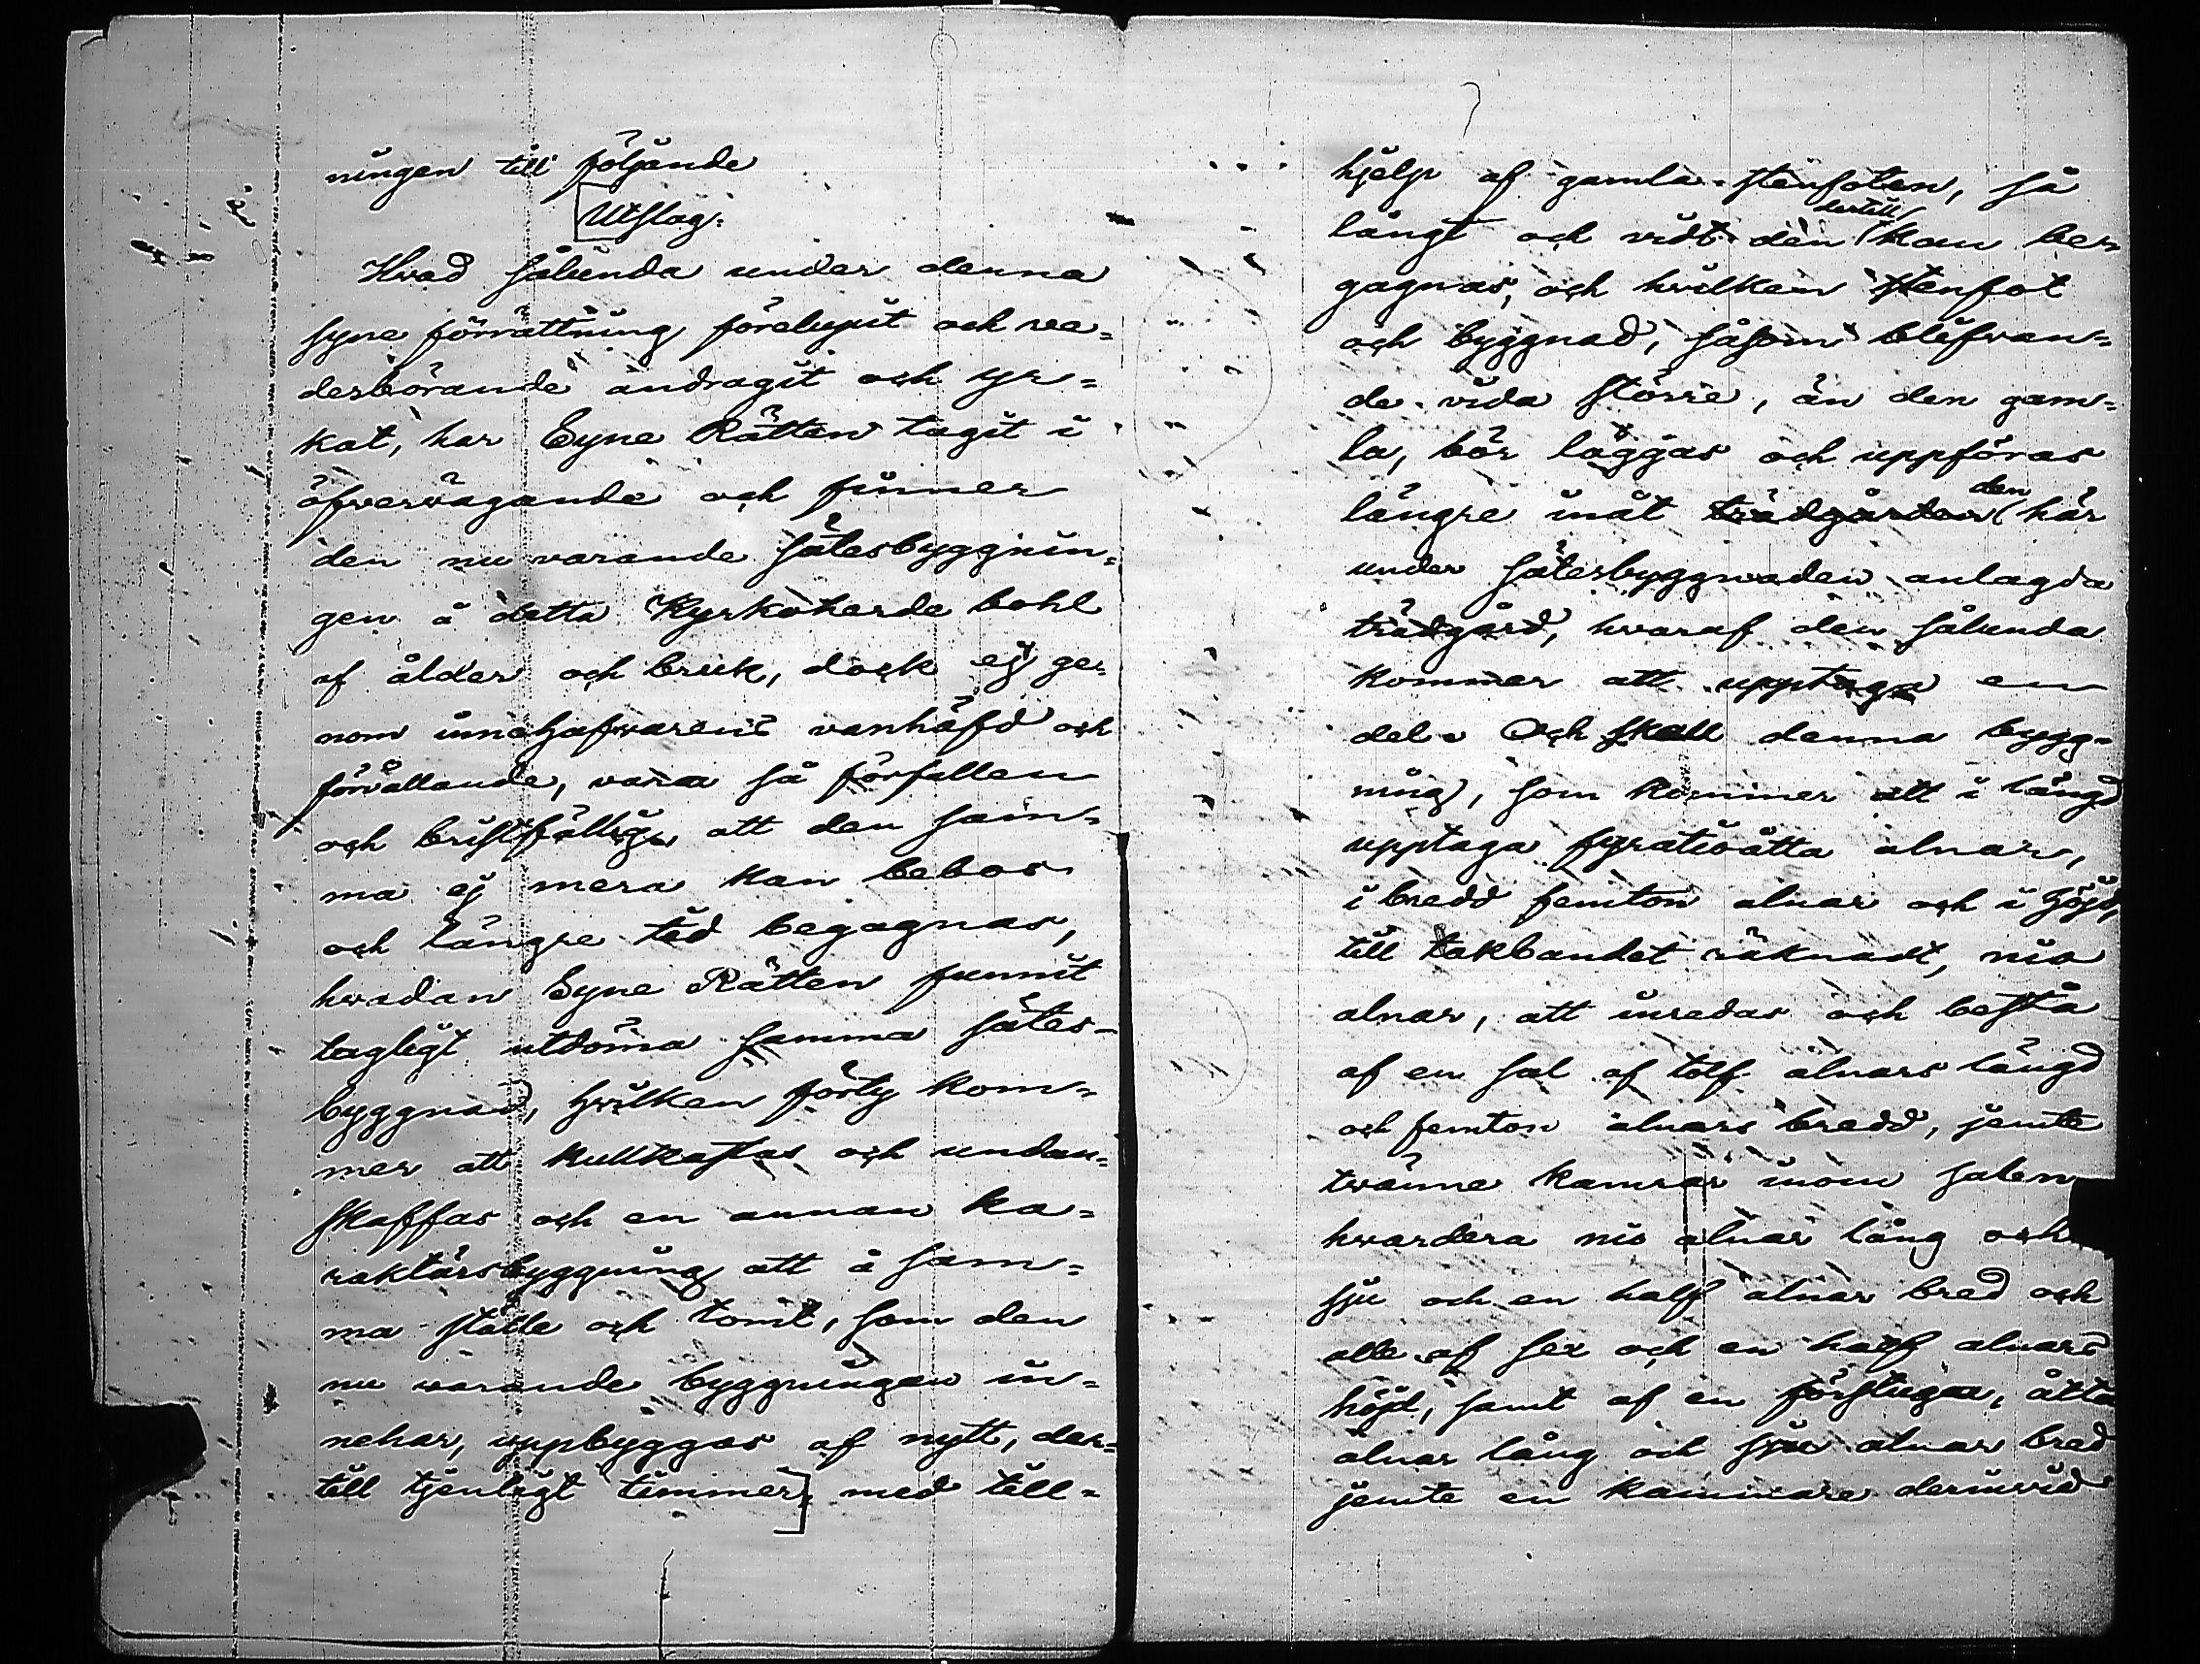 ningen till följande
[Utslag:
Hvad sålunda under denna
syne förrättning förelupit och ve=
derbörande andragit och yr=
kat, har Syne Rätten tagit i
öfvervägande och finner
den nu varande sätesbyggnin=
gen å detta Kyrkoherde bohl
af ålder och bruk, dock ej ge=
nom innehafvarens vanhäfd och
förvållande, vara så förfallen
och bristfällig, att den sam=
ma ej mera kan bebos
och längre tid begagnas,
hvadan Syne Rätten funnit
lagligt utdöma samma sätes=
byggnad, hvilken förty kom=
mer att kullkastas och undan=
skaffas och en annan ka=
raktärsbyggning att å sam=
ma ställe och tomt, som den
nu varande byggningen in=
nehar, uppbyggas af nytt, der=
till tjenligt timmer] med till=
hjelp af gamla stenfoten, så
långt och vidt den dertill kan be=
gagnas, och hvilken stenfot
och byggnad, såsom blifvan=
de vida större, än den gam=
la, bör läggas och uppföras
längre inåt trädgården den här
under sätesbyggnaden anlagda
trädgård, hvaraf den sålunda
kommer att upptaga en
del. Och skall denna bygg=
ning, som kommer att i längd
upptaga fyratioåtta alnar,
i bredd femton alnar och i höjd,
till takbandet räknadt, nio
alnar, att inredas och bestå
af en sal af tolf alnars längd
och femton alnars bredd, jemte
tvänne kamrar inom salen
hvardera nio alnar lång och
sju och en half alnar bred och
alle af sex och en half alnars
höjd, samt af en förstuga, åtta
alnar lång och sju alnar bred
jemte en kammare derinvid